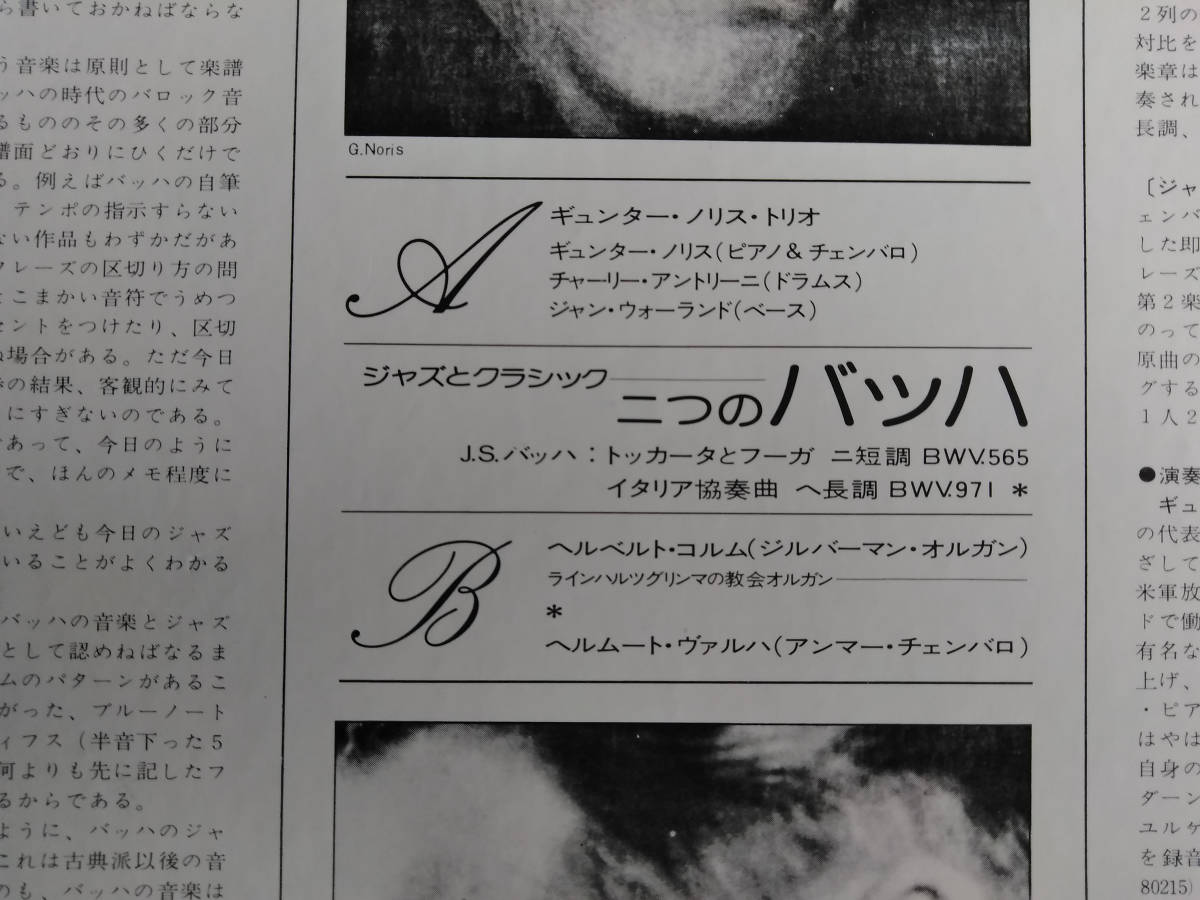 ら書いておかねばならな
う音楽は原則として楽譜
ッハの時代のバロック音
るもののその多くの部分
譜面どおりにひくだけで
る。例えばバッハの自筆
、テンポの指示すらない
ない作品もわずかだがあ
フレーズの区切り方の問
とこまかい音符でうめつ
セントをつけたり、区切
ね場合がある。ただ今日
の結果、客観的にみて
にすぎないのである。
であって、今日のように
で、ほんのメモ程度に
いえども今日のジャズ
いることがよくわかる
バッハの音楽とジャズ
として認めねばなるま
ムのパターンがあるこ
がった、ブルーノート
ィフス（半音下った5
何よりも先に記したフ
るからである。
ように、バッハのジャ
これは古典派以後の音
のも、バッハの音楽は
G.Noris
A
ギュンター・ノリス・トリオ
ギュンター・ノリス(ピアノ&チェンバロ)
チャーリー・アントリーニ(ドラムス)
ジャン・ウォーランド(ベース)
ジャズとクラシック
二つのバッハ
J.S.バッハ：トッカータとフーガ ニ短調 BWV.565
イタリア協奏曲 ヘ長調 BWV.971 *
B
ヘルベルト・コルム(ジルバーマン・オルガン)
ラインハルツグリンマの教会オルガン
*
ヘルムート・ヴァルハ(アンマー・チェンバロ)
2列の
対比を
楽章は
奏され
長調、
〔ジャ
ェンバ
した即
レーズ
第2楽
のって
原曲の
グする
1人2
●演奏
ギュ
の代表
ざして
米軍放
ドで働
有名な
上げ、
・ピア
はやは
自身の
ダーン
ユルケ
を録音
80215)